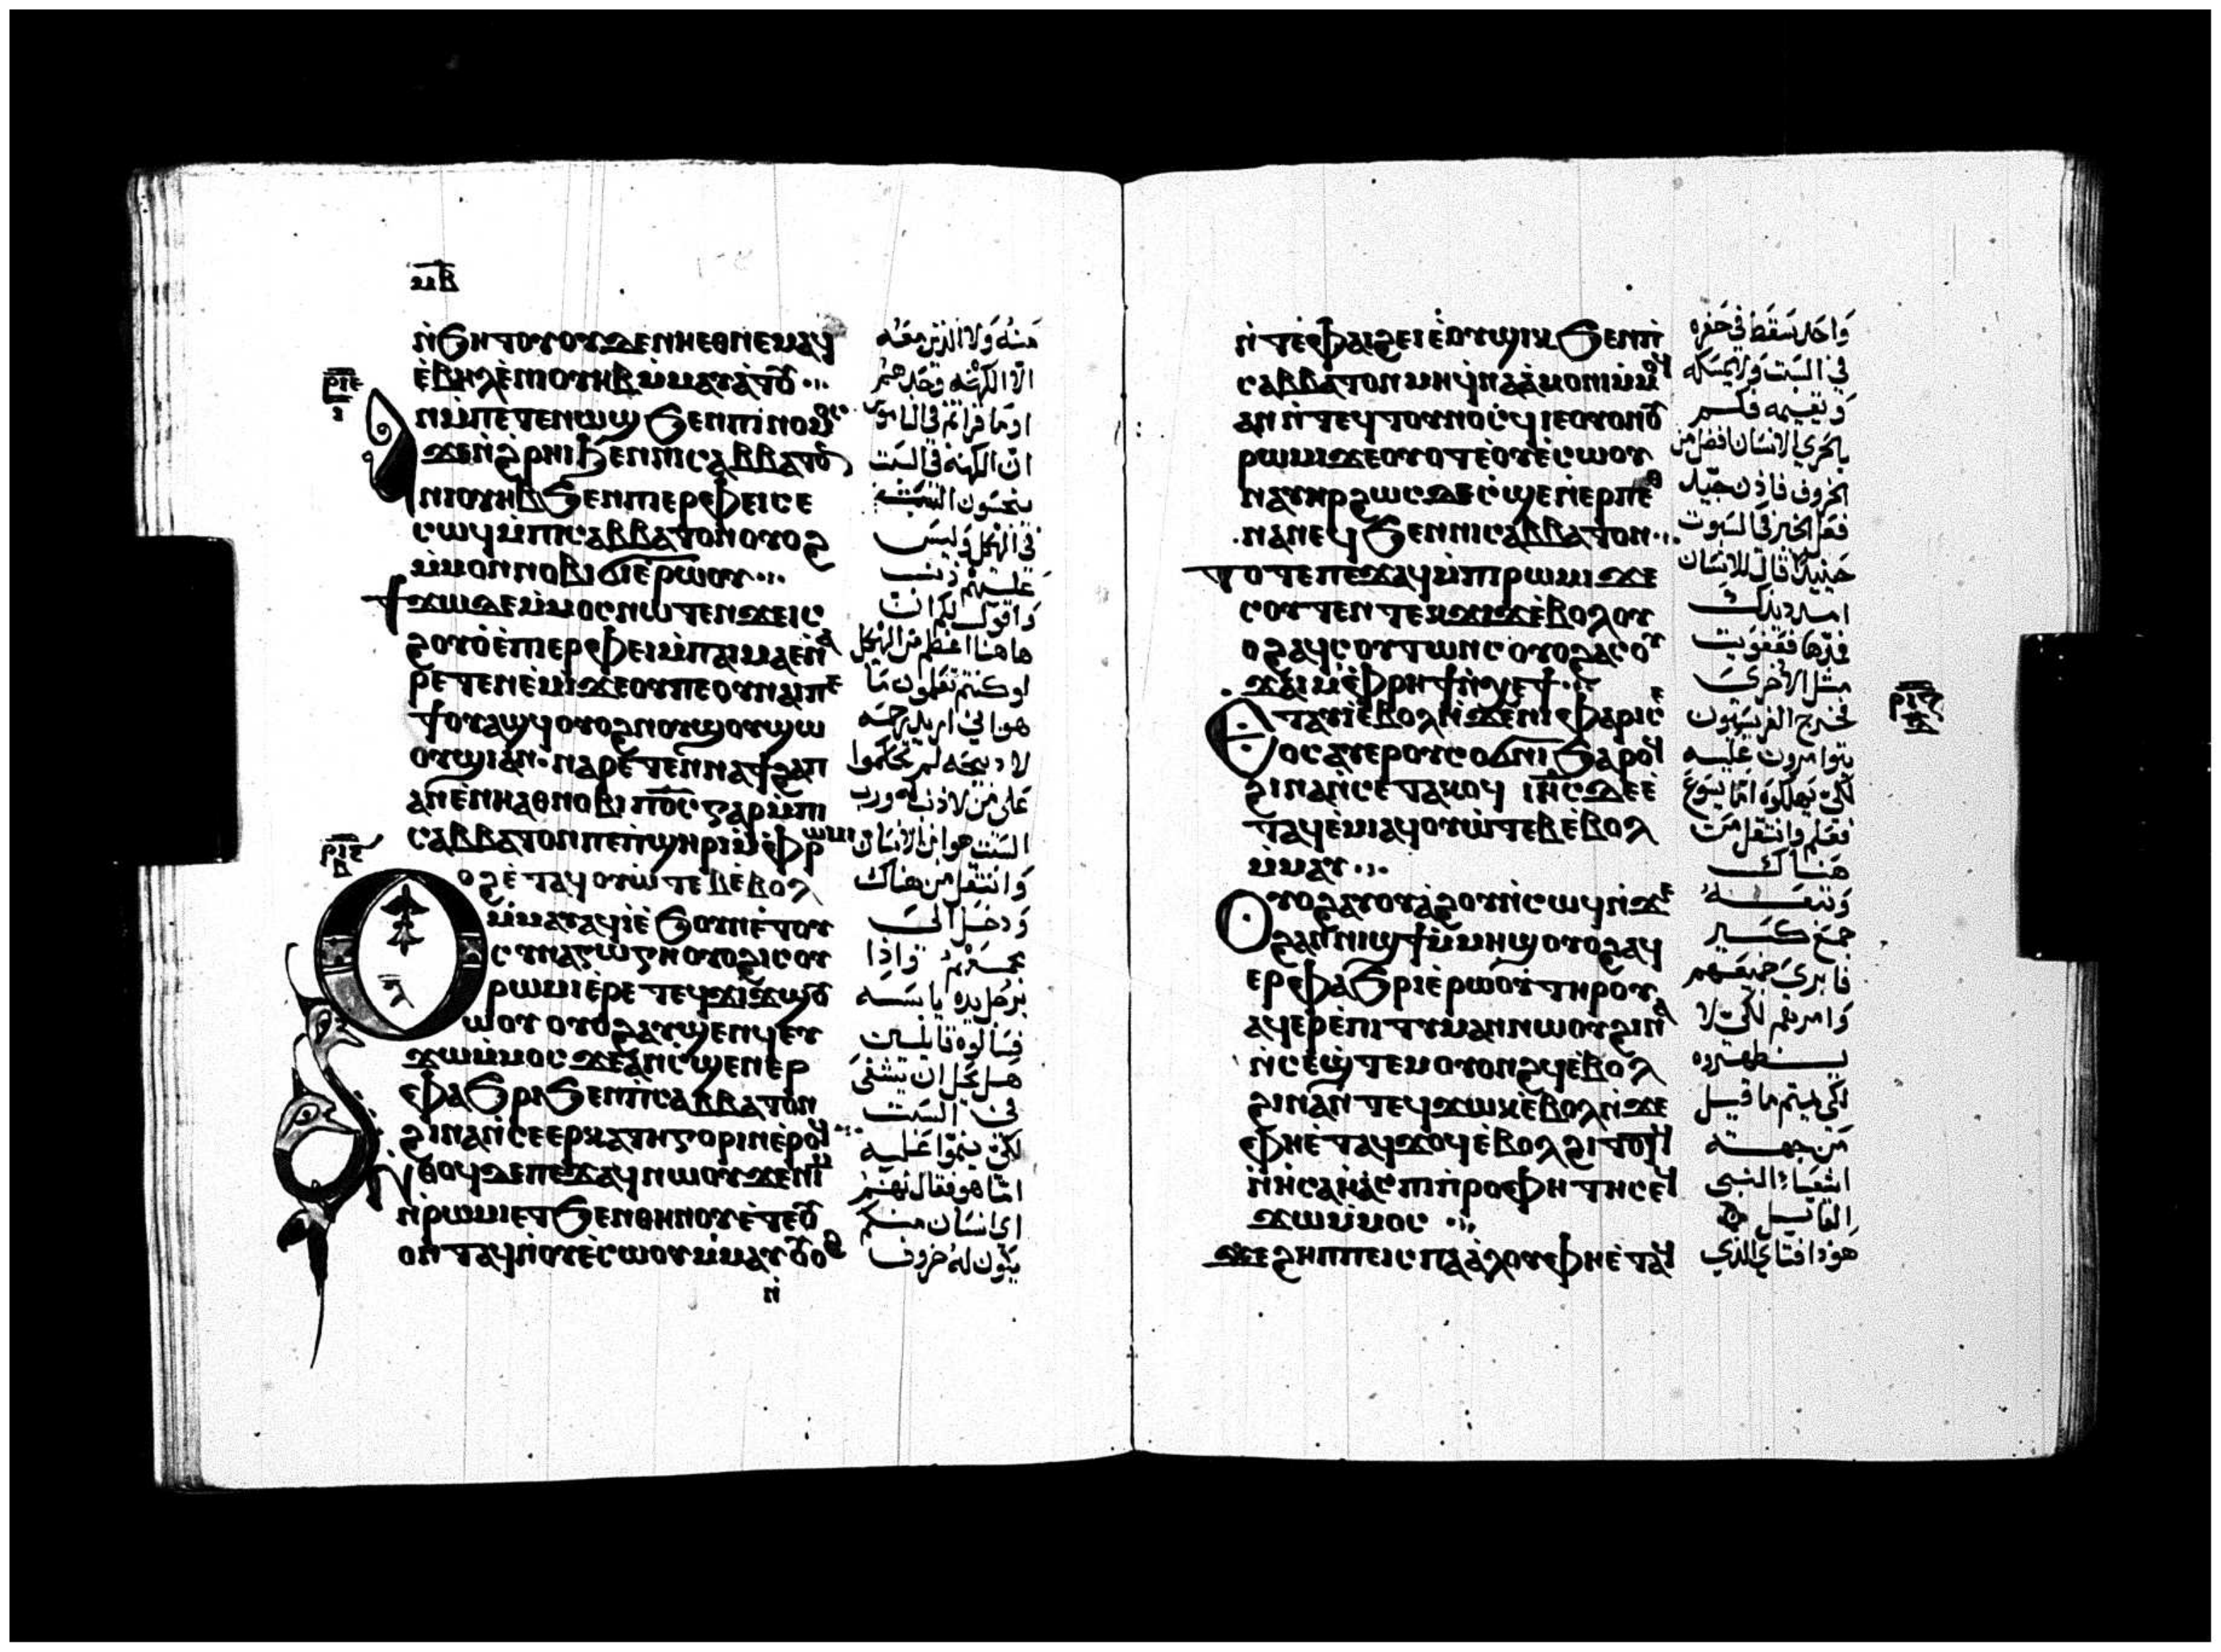 ⲙⲃ
ⲛ̀ϧⲏⲧⲟⲩⲟⲩⲇⲉⲛⲏⲉⲑⲛⲉⲙⲁϥ
ⲉ̀ⲃⲏⲗⲉ̀ⲛⲓⲟⲩⲏⲃⲙ̀ⲙⲁⲩⲁ̀ⲧⲟⲩ
ⲣⲓⲉ
ⲁⲛⲙ̀ⲡⲉⲧⲉⲛⲱϣϧⲉⲛⲡⲓⲛⲟⲙⲟⲥ
ϫⲉⲛ̀ϩⲣⲏⲓϧⲉⲛⲛⲓⲥⲁⲃⲃⲁⲧⲟⲛ
ⲛⲓⲟⲩⲏⲃϧⲉⲛⲡⲓⲉⲣⲫⲉⲓⲥⲉ
ⲥⲱϥⲙ̀ⲡⲓⲥⲁⲃⲃⲁⲧⲟⲛⲟⲩⲟϩ
ⲙ̀ⲙⲟⲛⲛⲟⲃⲓϭⲓⲉ̀ⲣⲱⲟⲩ
ϯϫⲱⲇⲉⲙ̀ⲙⲟⲥⲛⲱⲧⲉⲛϫⲉⲓⲥ
ϩⲟⲩⲟ̀ⲉ̀ⲡⲓⲉⲣⲫⲉⲓⲙ̀ⲡⲁⲓⲙⲁⲉⲛⲁ
ⲣⲉⲧⲉⲛⲉ̀ⲙⲓϫⲉⲟⲩⲡⲉⲟⲩⲛⲁⲓⲡⲉ
ϯⲟⲩⲁϣϥⲟⲩⲟϩⲛⲟⲩϣⲟⲩϣⲱ
ⲟⲩϣⲓⲁⲛ·ⲛⲁⲣⲉⲧⲉⲛⲛⲁϯϩⲁⲡ
ⲁⲛⲉ̀ⲛⲏⲁⲑⲛⲟⲃⲓⲡⲟ̅ⲥ̅ⲅⲁⲣⲙ̀ⲡⲓ
ⲥⲁⲃⲃⲁⲧⲟⲛⲡⲉⲡ̀ϣⲏⲣⲓⲙ̀ⲫⲣⲱⲙⲓ
ⲣⲓⲋ
ⲃ
ⲟⲩⲟϩⲉ̀ⲧⲁϥⲟⲩⲱ̀ⲧⲉⲃⲉ̀ⲃⲟⲗ
ⲙ̀ⲙⲁⲩⲁϥⲓ̀ⲉ̀ϧⲟⲩⲛⲉ̀ⲧⲟⲩ
ⲥⲩⲛⲁⲅⲱⲅⲏⲟⲩⲟϩⲓⲥⲟⲩ
ⲣⲱⲙⲓⲉ̀ⲣⲉⲧⲉϥϫⲓϫϣⲟⲩ
ⲱⲟⲩⲟⲩⲟϩⲁⲩϣⲉⲛϥⲉⲩ
ϫⲱⲙ̀ⲙⲟⲥϫⲉⲁⲛⲥ̀ϣⲉⲛⲉⲣ
ⲫⲁϧⲣⲓϧⲉⲛⲡⲓⲥⲁⲃⲃⲁⲧⲟⲛ
ϩⲓⲛⲁⲛ̀ⲥⲉⲉⲣⲕⲁⲧⲏⲅⲟⲣⲓⲛⲉ̀ⲣⲟϥ
ⲛ̀ⲑⲟϥⲇⲉⲡⲉϫⲁϥⲛⲱⲟⲩϫⲉⲛⲓⲙ
ⲛ̀ⲣⲱⲙⲓⲉⲧϧⲉⲛⲑⲏⲛⲟⲩⲉ̀ⲧⲉⲟⲩ
ⲟⲛⲧⲁϥⲛ̀ⲟⲩⲉ̀ⲥⲱⲟⲩⲙ̀ⲙⲁⲩⲟⲩⲟϩ
ⲛ̀
منه ولا الذين معه
الا الكهنه وحدهم
اوما قراتم في الناموس
ان الكهنه في السبت
ينجسون السبت
في الهيكل وليس
عليهم ذنب
واقول لكم ان
هاهنا اعظم من الهيكل
لو كنتم تعلمون ما
هو اني اريد رحمه
لا ذبيحه لم تحكموا
على من لا ذنب له ورب
السبت هو ابن الانسان
وانتقل من هناك
ودخل الى
مجمعهم واذا
برجل يده يابسه
فسالوه قايلين
هل يحل ان يشفى
في السبت
لكي ينموا عليه
اما هو فقال لهم
اي انسان منكم
يكون له خروف
ⲛ̀ⲧⲉⲫⲁⲓϩⲉⲓⲉ̀ⲟⲩϣⲓⲕϧⲉⲛⲡⲓ
ⲥⲁⲃⲃⲁⲧⲟⲛⲙⲏϥ̀ⲛⲁⲁ̀ⲙⲟⲛⲓⲙ̀ⲙⲟϥ
ⲁⲛⲛ̀ⲧⲉϥⲧⲟⲩⲛⲟⲥϥⲓⲉⲟⲩⲟⲛⲟⲩ
ⲣⲱⲙⲓϫⲉⲟⲩⲟⲧⲉ̀ⲟⲩⲉ̀ⲥⲱⲟⲩ
ⲛⲁⲩⲏⲣϩⲱⲥⲇⲉⲥ̀ϣⲉⲛ̀ⲉⲣⲡⲉⲑ
ⲛⲁⲛⲉϥϧⲉⲛⲛⲓⲥⲁⲃⲃⲁⲧⲟⲛ
ⲧⲟⲧⲉⲡⲉϫⲁϥⲙ̀ⲡⲓⲣⲱⲙⲓϫⲉ
ⲥⲟⲩⲧⲉⲛⲧⲉⲕϫⲓϫⲉ̀ⲃⲟⲗⲟⲩ
ⲟϩⲁϥⲥⲟⲩⲧⲱⲛⲥⲟⲩⲟϩⲁⲥⲟⲩ
ϫⲁⲓⲙ̀ⲫⲣⲏϯⲛ̀ϯⲭⲉϯ
ⲉⲧⲁⲩⲓ̀ⲉ̀ⲃⲟⲗⲛ̀ϫⲉⲛⲓⲫⲁⲣⲓⲥⲉ
ⲟⲥⲁⲩⲉⲣⲟⲩⲥⲟϭⲛⲓϧⲁⲣⲟϥ
ϩⲓⲛⲁⲛ̀ⲥⲉⲧⲁⲕⲟϥ ⲓⲏ̅ⲥ̅ⲇⲉⲉ̀
ⲧⲁϥⲉ̀ⲙⲓⲁϥⲟⲩⲱ̀ⲧⲉⲃⲉ̀ⲃⲟⲗ
ⲙ̀ⲙⲁⲩ
ⲟⲩⲟϩⲁⲩⲟⲩⲁ̀ϩⲟⲩⲛ̀ⲥⲱϥⲛ̀ϫⲉ
ϩⲁⲛⲛⲓϣϯⲙ̀ⲙⲏϣⲟⲩⲟϩⲁϥ
ⲉⲣⲫⲁϧⲣⲓⲉ̀ⲣⲱⲟⲩⲧⲏⲣⲟⲩ
ⲁϥⲉⲣⲉ̀ⲡⲓⲧⲓⲙⲁⲛⲛⲱⲟⲩϩⲓⲛⲁ
ⲛ̀ⲥⲉϣ̀ⲧⲉⲙⲟⲩⲟⲛϩϥⲉ̀ⲃⲟⲗ
ϩⲓⲛⲁⲛ̀ⲧⲉϥϫⲱⲕⲉ̀ⲃⲟⲗⲛ̀ϫⲉ
ⲫⲏⲉ̀ⲧⲁϥϫⲟϥⲉ̀ⲃⲟⲗϩⲓⲧⲟⲧϥ
ⲛ̀ⲏⲥⲁⲏ̀ⲁⲥⲡⲓⲡ̀ⲣⲟⲫⲏⲧⲏⲥⲉϥ
ϫⲱⲙ̀ⲙⲟⲥ
ϫⲉϩⲏⲡⲡⲉⲓⲥⲡⲁⲁ̀ⲗⲟⲩⲫⲏⲉ̀ⲧⲁⲓ
ⲣⲓⲍ
ⲇ
واحد سقط في حفره
في السبت ولا يمسكه
ويقيمه فكم
بالحري الانسان افضل من
الخروف فاذن جيد
فعل الخير في السبوت
حينيذ قال للانسان
امدد يدك
فمدها فعوفيت
مثل الاخرى
فخرج الفريسيون
يتوامرون عليه
لكي يهلكوه اما يسوع
فعلم وانتقل من
هناك
وتبعه
جمع كثير
فابرى جميعهم
وامرهم لكي لا
يظهروه
لكي يتم ما قيل
من جهة
اشعياء النبي
القايل
هوذا فتاي الذي